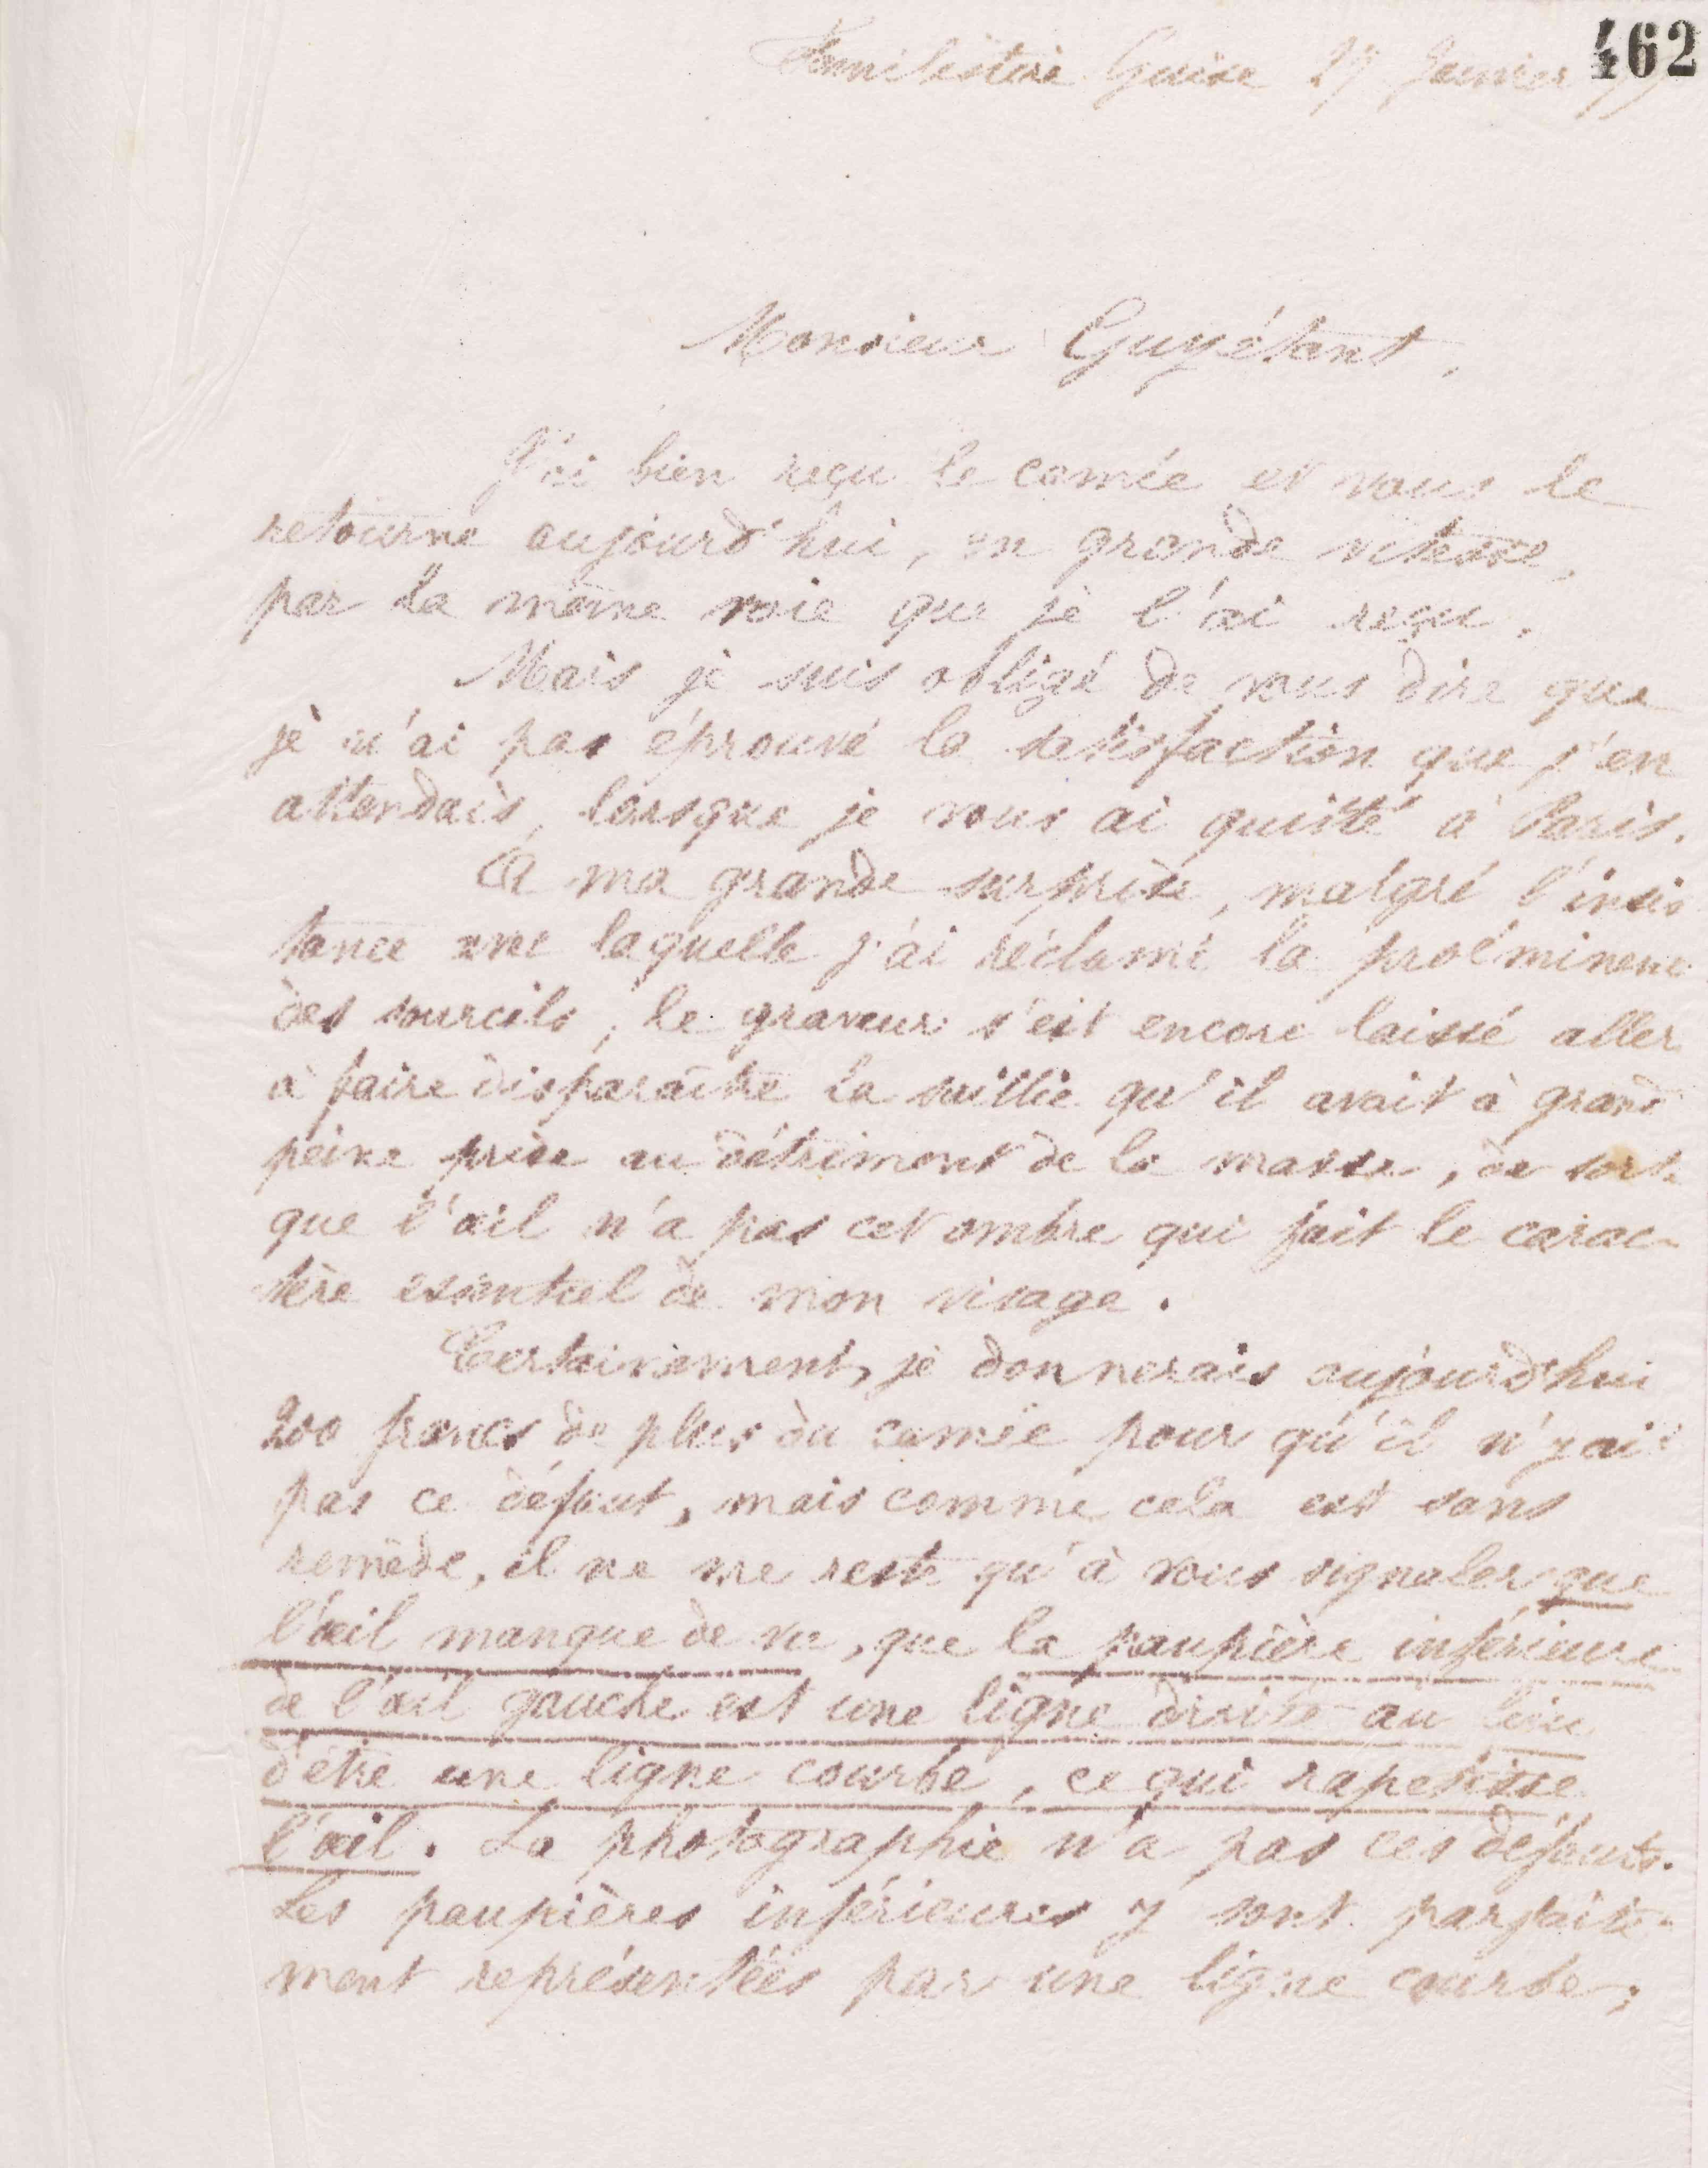 462
Familistère Guise 27 Janvier
Monsieur Guyétant,
J'ai bien reçu le camée et vous le
retourne aujourd'hui, en grande vitesse,
par la même voie que je l'ai reçu.
Mais je suis obligé de vous dire que
je n'ai pas éprouvé la satisfaction que j'en
attendais, lorsque je vous ai quitté à Paris.
À ma grande surprise, malgré l'insis
tance avec laquelle j'ai réclamé la proéminence
des sourcils, le graveur s'est encore laissé aller
à faire disparaître la saillie qu'il avait à grand
peine prise au détriment de la masse, de sorte
que l'œil n'a pas cet ombre qui fait le carac-
tère essentiel de mon visage.
Certainement, je donnerais aujourd'hui
200 francs de plus du camée pour qu'il n'y ait
pas ce défaut, mais comme cela est sans
remède, il ne me reste qu'à vous signaler que
l'œil manque de vie, que la paupière inférieure
de l'œil gauche est une ligne droite au lieu
d'être une ligne courbe, ce qui rapetisse
l'œil. La photographie n'a pas ces défauts.
Les paupières inférieures y sont parfaite-
ment représentées par une ligne courbe;